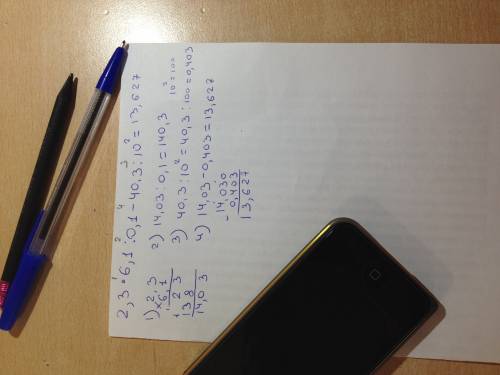 2,3 · 6,1 : 0,1 - 40,3 : 10² = 13,627
1 2 4 3
1) 2,3
× 6,1
+ 2 3
13 8
14,0 3
2) 14,03 : 0,1 = 140,3
10² = 100
3) 40,3 : 10² = 40,3 : 100 = 0,403
4) 14,03 - 0,403 = 13,627
- 14,030
0,403
13,627